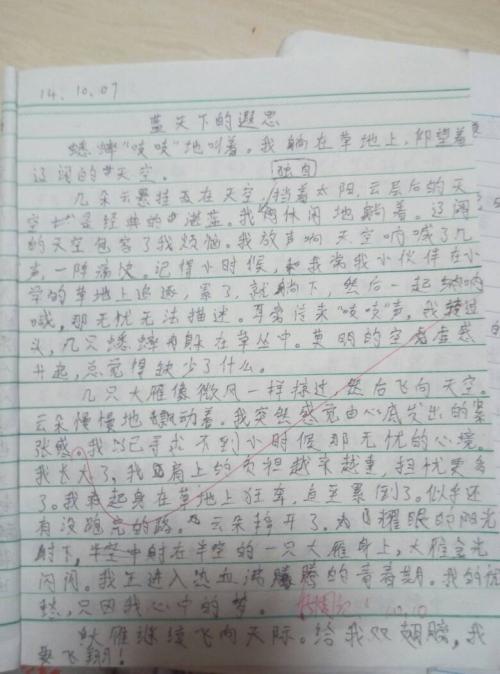 14.10.07
蓝天下的遐思
蟋蟀“吱吱”地叫着。我躺在草地上，仰望着
辽阔的天空。
独自
几朵云悬挂在天空，挡着太阳，云层后的天
空是经典的湛蓝。我休闲地躺着。辽阔
的天空包容了我烦恼。我放声向天空呐喊了几
声，一阵痛快。记得小时候，我常我小伙伴在小
学的草地上追逐，累了，就躺下，然后一起呐
喊，那无忧无法描述。耳旁传来“吱吱”声，我转过
头，几只蟋蟀躲在草丛中。莫明的空虚感
升起，总觉得缺少了什么。
几只大雁像微风一样掠过，然后飞向天空。
云朵慢慢地飘动着。我突然感觉由心底发出的紧
张感，我以已寻求不到小时候那无忧的心境。
我长大了，我肩上的负担越来越重，担忧更多
了。我起身在草地上狂奔，直至累倒了。似乎还
有没跑完的路。云朵挣开了，耀眼的阳光
射下，半空中射在半空的一只大雁身上，大雁金光
闪闪。我正进入热血沸腾的青春期。我的忧
愁，只因我心中的梦。
10.10
大雁继续飞向天际。给我双翅膀，我
要飞翔！